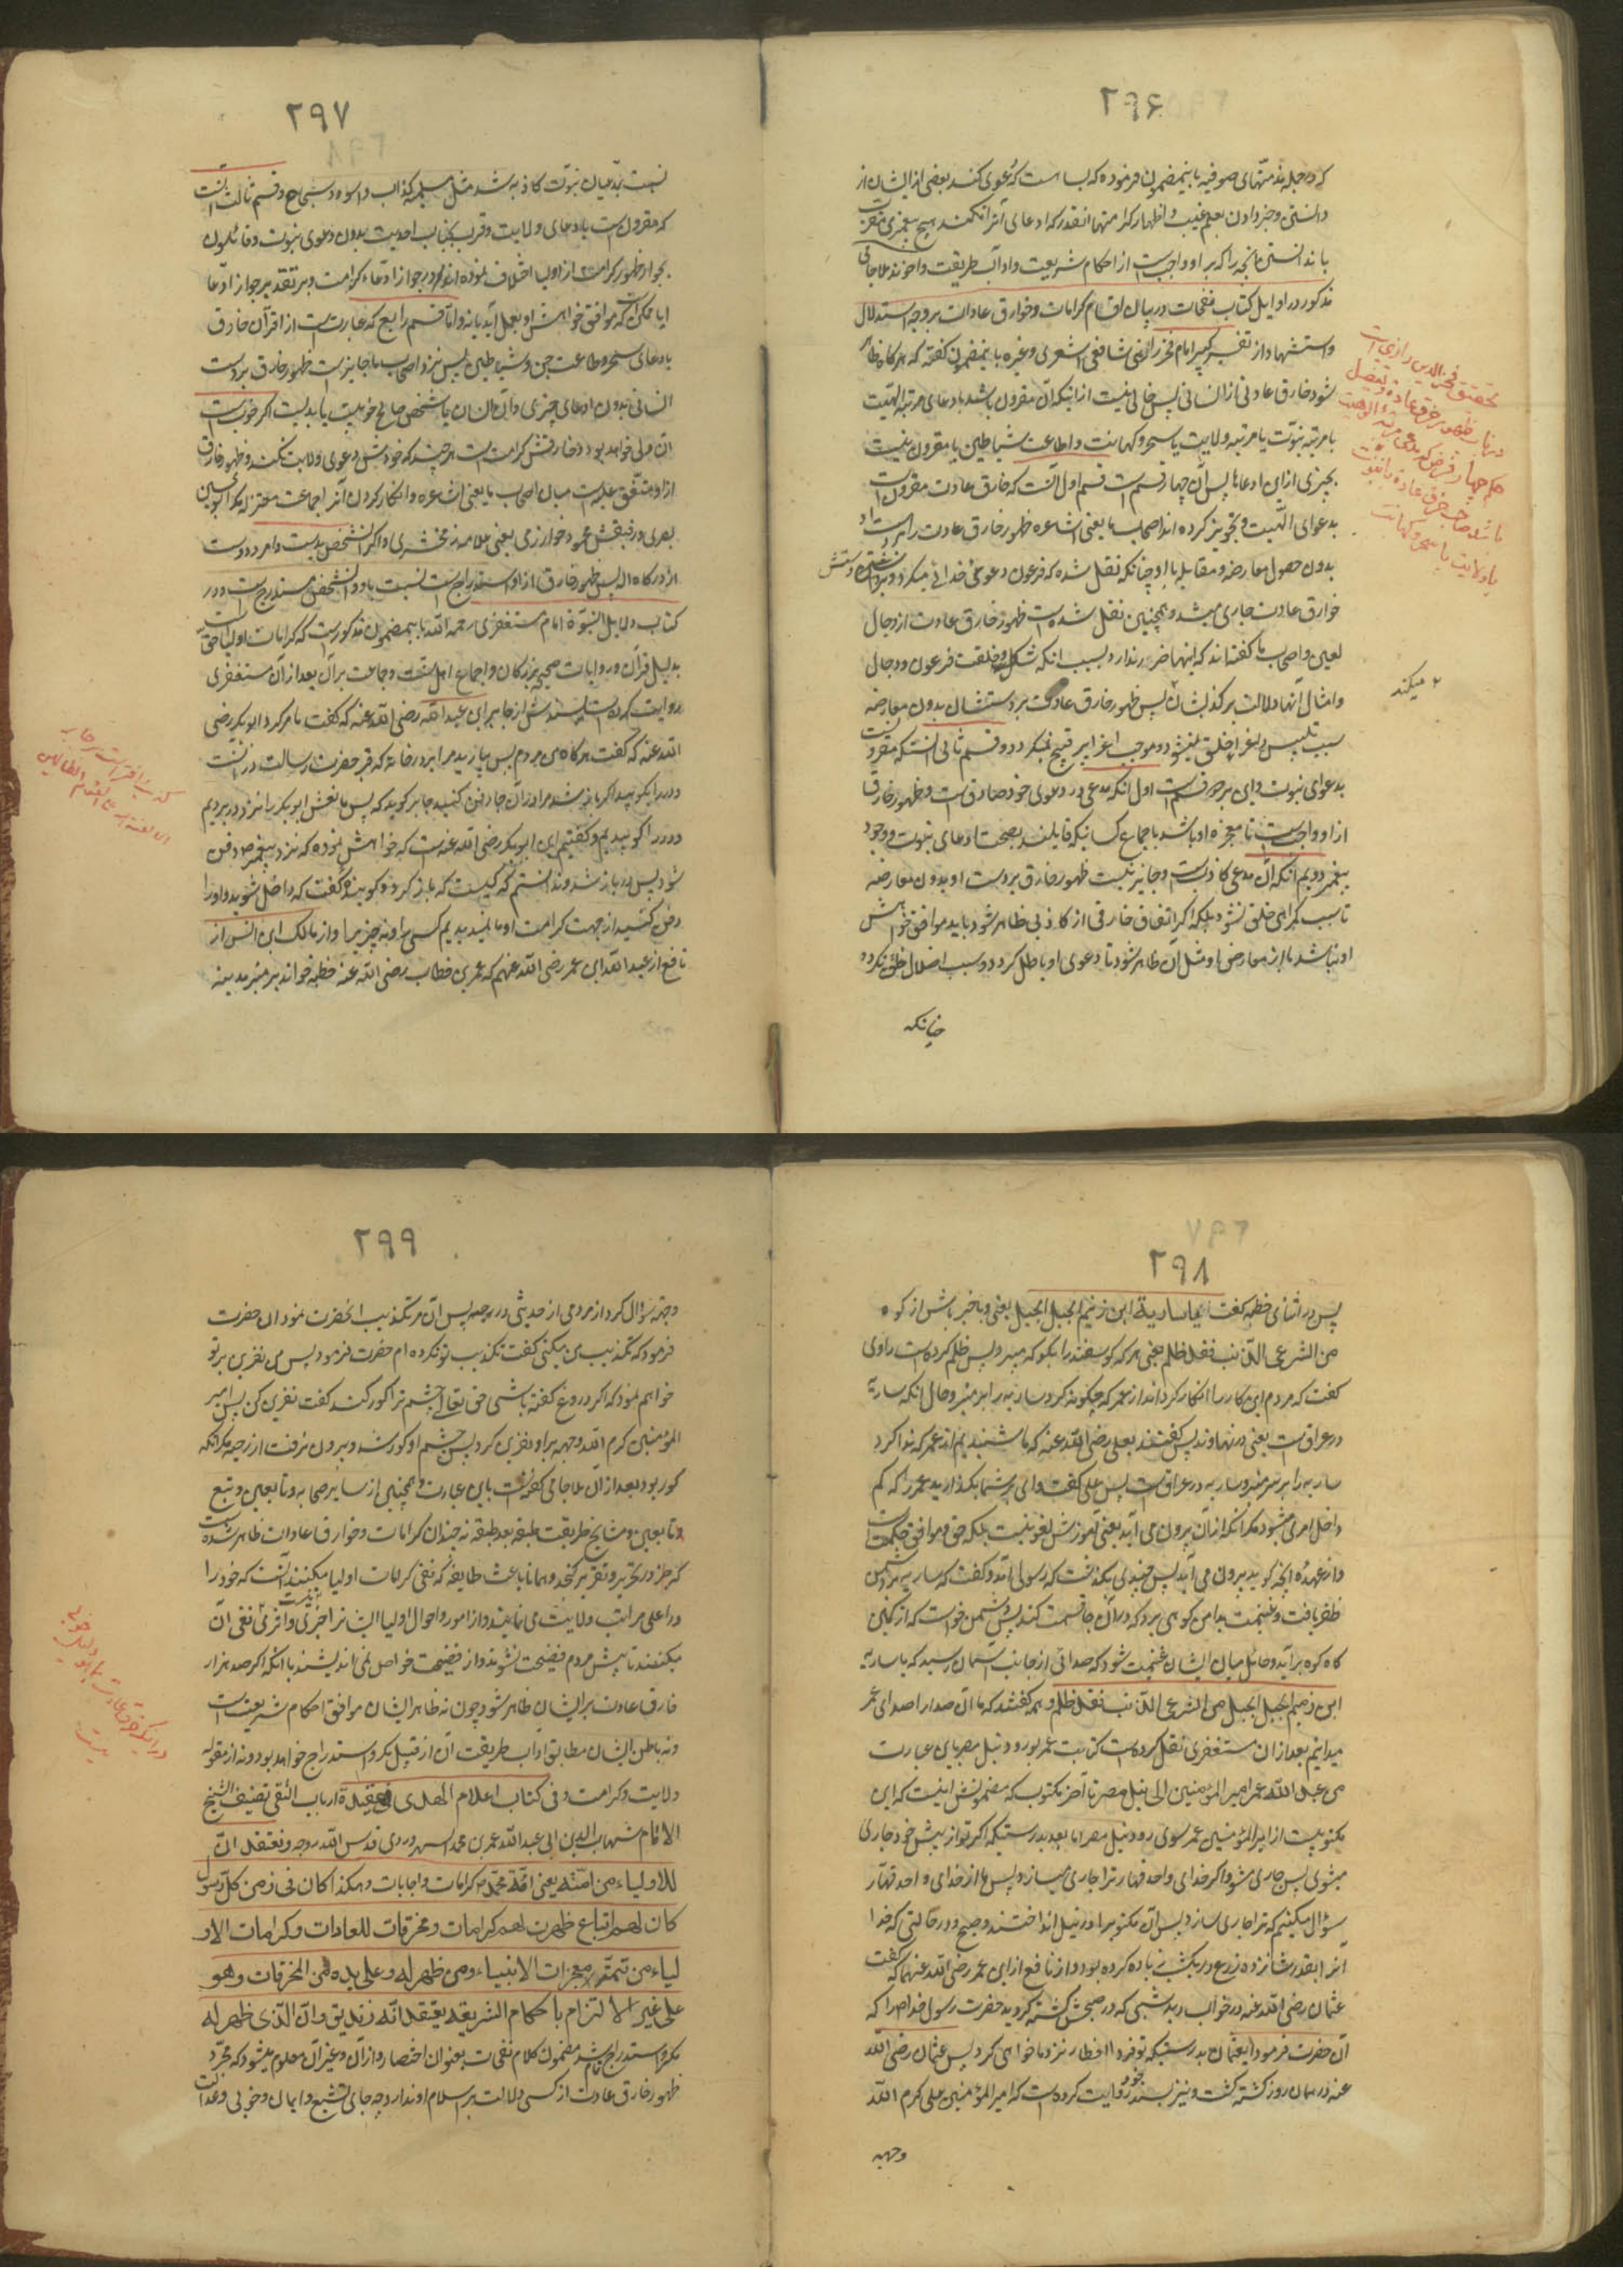 ۲۹۶
که در جمله مذمتهای صوفیه باینمضمون فرموده که بسا هست که دعوی کند بعضی از ایشان از
دانستن و خبر دادن بعلم غیب و اظهار کرامتها انقدر که ادعای آنرا نکند هیچ پیغمبری مقرب
با ندانستن آنچه را که بر او واجبست از احکام شریعت و اداب طریقت واخوند ملا جامی
مذکور در اوایل کتاب نفحات در بیان اقسام کرامات و خوارق عادات بر وجه استدلال
و استشهاد از تفسیر کبیر امام فخر رازی شافعی اشعری و غیره باینمضمون گفته که هرگاه ظاهر
شود خارق عادتی از انسانی پس خالی نیست از اینکه آن مقرون باشد بادعای مرتبه الهیت
یا مرتبه نبوت یا مرتبه ولایت یا سحر و کهانت و اطاعت شیاطین یا مقرون نیست
بچیزی از این ادعاها پس آن چهار قسم است قسم اول آنست که خارق عادت مقرونست
بدعوای الهیت و تجویز کرده اند اصحاب ما یعنی اشاعره ظهور خارق عادت را بر دست او
بدون حصول معارضه و مقابله با او چنانکه نقل شده که فرعون دعوی خدائی میکرد و بر دستش
خوارق عادت جاری میشد و همچنین نقل شده است ظهور خارق عادت از دجال
لعین و اصحاب ما گفته اند که اینها ضرر ندارد بسبب انکه شکل و خلقت فرعون و دجال
و امثال آنها دلالت بر کذبشان میکند پس ظهور خارق عادت بر دستشان بدون معارضه
سبب تلبیس و اغراء خلق نمیشود و موجب اغرا بر قبیح نمیگردد و قسم ثانی انستکه مقرونست
بدعوای نبوت و این بر دو قسم است اول انکه مدعی در دعوی خود صادق است و ظهور خارق
از او واجبست تا معجزه او باشد باجماع کسانیکه قایلند بصحت ادعای نبوت و وجود
پیغمبر دویم انکه آن مدعی کاذبست و جایز نیست ظهور خارق بر دست او بدون معارضه
تا سبب گمراهی خلق نشود بلکه اگر اتفاق خارقی از کاذبی ظاهر شود باید موافق خواهش
او نباشد یا از معارض او مثل آن ظاهر شود تا دعوی او باطل گردد و سبب اضلال خلق نگردد
چنانکه
تحقیق فخر الدین رازی است
در باب ظهور خرق عادة بتفصیل
میکند
۲۹۷
نسبت بمدعیان نبوت کاذبه شد مثل مسیلمه کذاب و اسود و سجاح و قسم ثالث آنست
که مقرون است بادعای ولایت و قرب بجناب احدیت بدون دعوی نبوت و قائلون
بجواز ظهور کرامت از اولیا اختلاف نموده اند در جواز ادعاء کرامت و بر تقدیر جواز ادعا
ایا ممکن است که موافق خواهش او بعمل آید یا نه و اما قسم رابع که عبارتست از اقرآن خارق
بادعای سحر و طاعت جن و شیاطین پس نزد اصحاب ما جایز است ظهور خارق بر دست
انسانی بدون ادعای چیزی و آن انسان یا شخص صالح خوبیست یا بدیست اگر خوبست
آن ولی خواهد بود و خارقش کرامت است هر چند که خودش دعوی ولایت نکند و ظهور خارق
از او متفق علیه است میان اصحاب ما یعنی اشاعره و انکار کردن آنرا جماعت معتزله مگر ابو الحسین
بصری و رفیقش محمود خوارزمی یعنی علامه زمخشری و اگر انشخص بدیست و مردود است
از درگاه اله پس ظهور خارق از او استدراج است نسبت باو و انشخص مستدرج است و در
کتاب دلایل النبوة امام مستغفری رحمه الله باینمضمون مذکور است که کرامات اولیا حقست
بدلیل قرآن و روایات صحیحه بزرگان و اجماع اهل سنت و جماعت بر آن بعد از آن مستغفری
روایت کرده است بسندش از جابر ابن عبدالله رضی الله عنه که گفت بامر کرد ابوبکر رضی
الله عنه که گفت هرگاه من مردم پس بیارید مرا بر در خانه که قبر حضرت رسالت در آنست
و در را بکوبید اگر باز شد مرا در آن جا دفن کنید جابر کوید که پس ما نعش ابوبکر را نزد در بردیم
و در را کوبیدیم و گفتیم این ابوبکر رضی الله عنه است که خواهش نموده که نزد پیغمبر ص دفن
شود پس در باز شد و ندانستم که کیست که باز کرد و کوینده گفت که داخل شوید و او را
دفن کنید از جهت کرامت او ما ندیدیم کسی را و نه چیزیرا و از مالک ابن انس از
نافع از عبدالله ابن عمر رضی الله عنهم که عمر بن خطاب رضی الله عنه خطبه خواند بر منبر مدینه
۲۹۸
پس در اثنای خطبه گفت یا ساریة ابن زنیم الجبل الجبل یعنی و با خبر باش از کوه
من استرعی الذئب فقد ظلم یعنی هر که گوسفند را بگرگ سپرد پس ظلم کرده است راوی
گفت که مردم این کار را انکار کرده اند از عمر که چگونه کرد ساریه را بر منبر و حال انکه ساریه
در عراقست یعنی در نهاوند پس گفتند بعلی رضی الله عنه که ما شنیدیم از عمر که ندا کرد
ساریه را بر سر منبر و ساریه در عراقست پس علی گفت وای بر شما بگذارید عمر را که کم
داخل امری میشود مگر انکه از آن بیرون می آید یعنی آموزش لغو نیست بلکه حق و موافق حکمتست
و از عهده آنچه گوید بیرون می آید پس چندی نگذشت که رسولی آمد و گفت که ساریه بر دشمن
ظفر یافت و غنیمت بدامن کوهی برد که در آن جا قسمت کند پس دشمن خواست که از کمین
گاه کوه بر آید و حائل میان ایشان غنیمت شود که صدائی از جانب آسمان رسید که یا ساریه
ابن زنیم الجبل الجبل من استرعی الذئب فقد ظلم و همه گفتند که ما آن صدا را صدای عمر
میدانیم بعد از ان مستغفری نقل کرده است کتابت عمر بر رود نیل مصر باین عبارت
من عبد الله عمر امیر المؤمنین الی نیل مصر تا آخر مکتوب که مضمونش اینست که این
مکتوبیست از امیر المؤمنین عمر سوی رود نیل مصر اما بعد بدرستیکه اگر تو از پیش خود جاری
میشوی پس جاری مشو و اگر خدای واحد قهار ترا جاری میسازد پس ما از خدای واحد قهار
سؤال میکنیم که ترا جاری سازد پس آن مکتوبرا در نیل انداختند و صبح در حالتی که خدا
آنرا بقدر شانزده ذرع در یکشب زیاده کرده بود و از نافع از ابن عمر رضی الله عنهما که گفت
عثمان رضی الله عنه در خواب دید شبی که در صبحش کشته گردید حضرت رسول خدا ص را که
آن حضرت فرمود ایعثمان بدرستیکه تو فردا افطار نزد ما خواهی کرد پس عثمان رضی الله
عنه در همان روز کشته گشت و نیز بسند خود روایت کرده است که امیر المؤمنین علی کرم الله
وجهه
۲۹۹
وجهه سؤال کرد از مردمی از حدیثی در رحبه پس آن مرد تکذیب انحضرت نمود ان حضرت
فرمود که تکذیب من میکنی گفت تکذیب تو نکرده ام حضرت فرمود پس من نفرین بر تو
خواهم نمود که اگر دروغ گفته باشی حق تعالی چشم ترا کور کند گفت نفرین کن پس امیر
المؤمنین کرم الله وجهه بر او نفرین کرد پس چشم او کور شد و بیرون نرفت از رحبه مگر انکه
کور بود بعد از آن ملا جامی گفته است باین عبارت و همچنین از سایر صحابه و تابعین و تبع
و تابعین و مشایخ طریقت طبقه بعد طبقه نه چندان کرامات و خوارق عادات ظاهر شده است
که در حیز تحریر و تقریر گنجد و همانا باعث طایفه که نفی کرامات اولیا میکنند آنست که خود را
در اعلی مراتب ولایت می نمایند و از امور و احوال اولیا ایشانرا خبری و اثری نیست نفی آن
میکنند تا پیش مردم فضیحت نشوند و از فضیحت خواص نمی اندیشند با انکه اگر صد هزار
خارق عادت بر ایشان ظاهر شود چون نه ظاهر ایشان موافق احکام شریعت است
و نه باطن ایشان مطابق اداب طریقت آن از قبیل مکر و استدراج خواهد بود نه از مقوله
ولایت و کرامت و فی کتاب اعلام الهدی و عقیدة ارباب التقی تصنیف الشیخ
الامام شهاب الدین ابی عبدالله عمر بن محمد السهروردی قدس الله روحه و نعتقد ان
للاولیاء من امته یعنی امة محمد ص کرامات و اجابات و هکذا کان فی زمن کل رسول
کان لهم اتباع ظهرت لهم کرامات و مخرقات للعادات و کرامات الاو
لیاء من تتمة معجزات الانبیاء و من ظهر له و علی یده من المخرقات و هو
علی غیر الالتزام باحکام الشریعة یعتقد انه زندیق و ان الذی ظهر له
مکر و استدراج تمام شد مضمون کلام نفحات بعنوان اختصار و از آن و غیر آن معلوم میشود که مجرد
ظهور خارق عادت از کسی دلالت بر اسلام او ندارد چه جای تشیع و ایمان و خوبی و عدالت